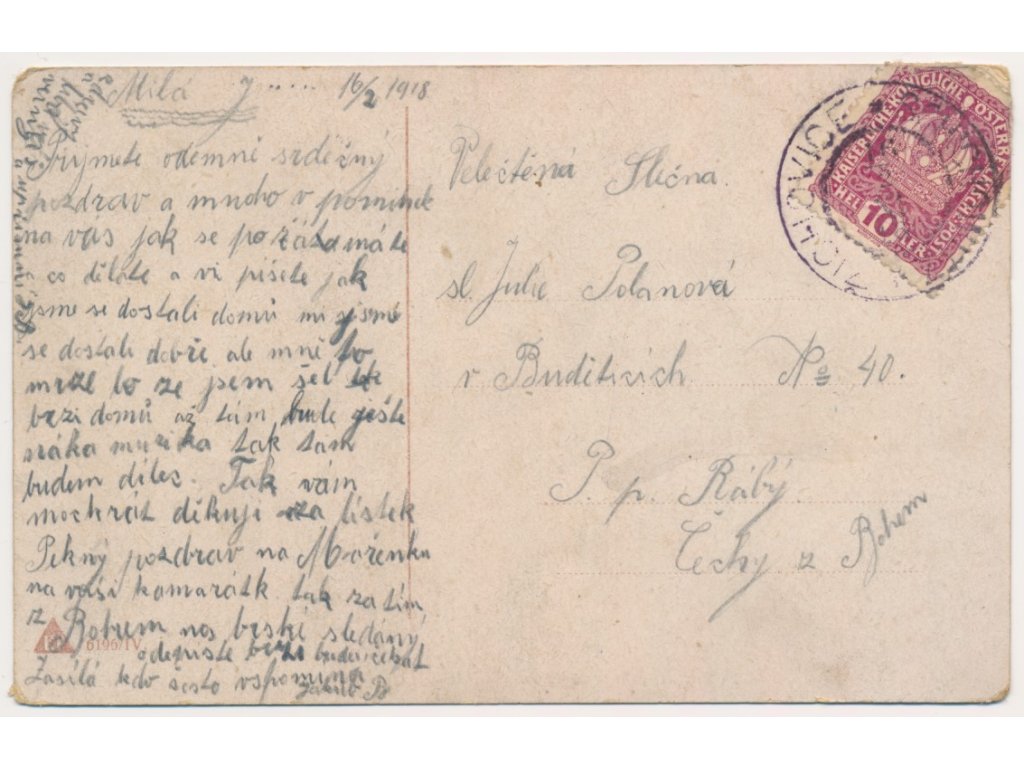 Milá J ..... 16/2 1918
Přijmete odemně srděžný
pozdrav a mnoho v pomínek
na vás jak se pořád máte
a co děláte a vi píšete jak
jsme se dostali domů mi jsme
se dostali dobře ale mně to
mrzé to ze jsem šel
brzi domů až tám bude ješte
náka muzika tak tám
budem dílec. Tak vám
mockrát děkuji za lístek
Pekný pozdrav na Mařenku
na vaši kamarátk tak zatím
z Bohem nas brské sledáný
odepiste brzi budu čekat
Zasílá kdo často vspomíná
Jakub B
Velectěná Slečna
sl. Julie Polanová
v Budětících No 40.
P. p. Rábý
Čechy z Bohem
KAISERLICHE KÖNIGLICHE ÖSTERR
10
HELLER
ŽICHOVICE
6196/IV